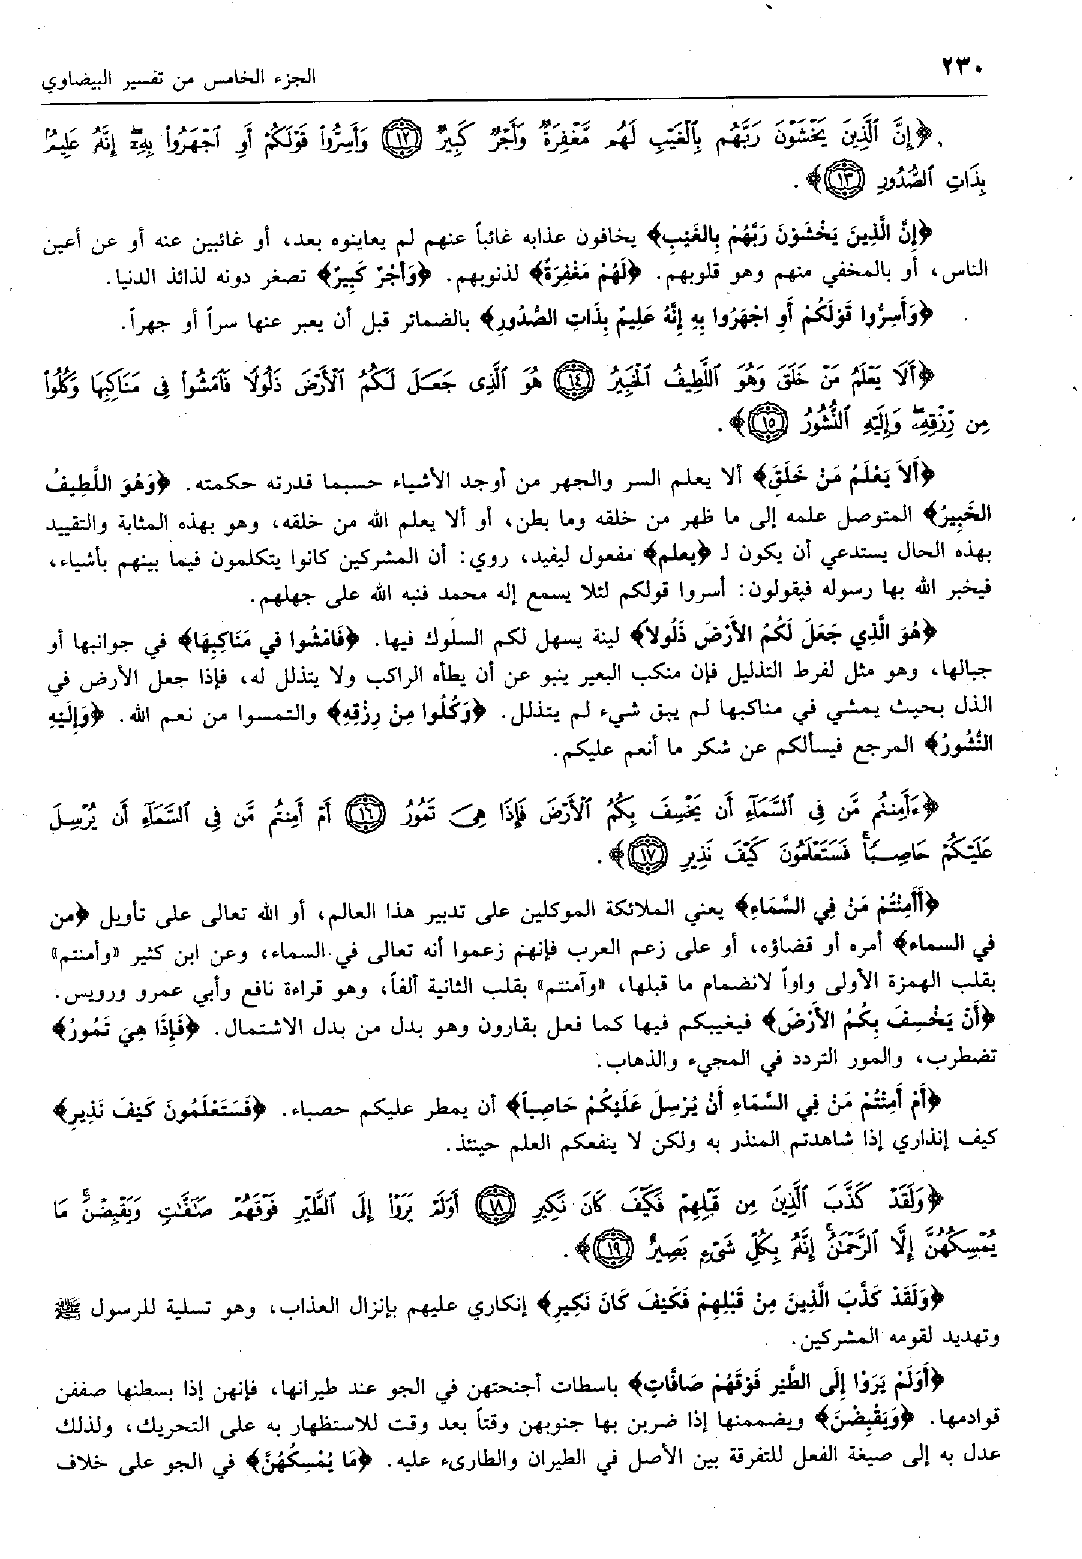 ٢٣٠
الجزء الخامس من تفسير البيضاوي
﴿إِنَّ ٱلَّذِينَ يَخْشَوْنَ رَبَّهُم بِٱلْغَيْبِ لَهُم مَّغْفِرَةٌ وَأَجْرٌ كَبِيرٌ ﴿١٢﴾ وَأَسِرُّوا۟ قَوْلَكُمْ أَوِ ٱجْهَرُوا۟ بِهِۦٓ إِنَّهُۥ عَلِيمٌۢ
بِذَاتِ ٱلصُّدُورِ ﴿١٣﴾﴾.
﴿إِنَّ الَّذِينَ يَخْشَوْنَ رَبَّهُمْ بِالغَيْبِ﴾ يخافون عذابه غائباً عنهم لم يعاينوه بعد، أو غائبين عنه أو عن أعين
الناس، أو بالمخفي منهم وهو قلوبهم. ﴿لَهُمْ مَغْفِرَةٌ﴾ لذنوبهم. ﴿وَأَجْرٌ كَبِيرٌ﴾ تصغر دونه لذائذ الدنيا.
﴿وَأَسِرُّوا قَوْلَكُمْ أَوِ اجْهَرُوا بِهِ إِنَّهُ عَلِيمٌ بِذَاتِ الصُّدُورِ﴾ بالضمائر قبل أن يعبر عنها سراً أو جهراً.
﴿أَلَا يَعْلَمُ مَنْ خَلَقَ وَهُوَ ٱللَّطِيفُ ٱلْخَبِيرُ ﴿١٤﴾ هُوَ ٱلَّذِى جَعَلَ لَكُمُ ٱلْأَرْضَ ذَلُولًا فَٱمْشُوا۟ فِى مَنَاكِبِهَا وَكُلُوا۟
مِن رِّزْقِهِۦ وَإِلَيْهِ ٱلنُّشُورُ ﴿١٥﴾﴾.
﴿أَلاَ يَعْلَمُ مَنْ خَلَقَ﴾ ألا يعلم السر والجهر من أوجد الأشياء حسبما قدرته حكمته. ﴿وَهُوَ اللَّطِيفُ
الخَبِيرُ﴾ المتوصل علمه إلى ما ظهر من خلقه وما بطن، أو ألا يعلم الله من خلقه، وهو بهذه المثابة والتقييد
بهذه الحال يستدعي أن يكون لـ ﴿يعلم﴾ مفعول ليفيد، روي: أن المشركين كانوا يتكلمون فيما بينهم بأشياء،
فيخبر الله بها رسوله فيقولون: أسروا قولكم لئلا يسمع إله محمد فنبه الله على جهلهم.
﴿هُوَ الَّذِي جَعَلَ لَكُمُ الأَرْضَ ذَلُولاً﴾ لينة يسهل لكم السلوك فيها. ﴿فَامْشُوا فِي مَنَاكِبِهَا﴾ في جوانبها أو
جبالها، وهو مثل لفرط التذليل فإن منكب البعير ينبو عن أن يطأه الراكب ولا يتذلل له، فإذا جعل الأرض في
الذل بحيث يمشي في مناكبها لم يبق شيء لم يتذلل. ﴿وَكُلُوا مِنْ رِزْقِهِ﴾ والتمسوا من نعم الله. ﴿وَإِلَيْهِ
النُّشُورُ﴾ المرجع فيسألكم عن شكر ما أنعم عليكم.
﴿ءَأَمِنتُم مَّن فِى ٱلسَّمَآءِ أَن يَخْسِفَ بِكُمُ ٱلْأَرْضَ فَإِذَا هِىَ تَمُورُ ﴿١٦﴾ أَمْ أَمِنتُم مَّن فِى ٱلسَّمَآءِ أَن يُرْسِلَ
عَلَيْكُمْ حَاصِبًا فَسَتَعْلَمُونَ كَيْفَ نَذِيرِ ﴿١٧﴾﴾.
﴿أَأَمِنْتُمْ مَنْ فِي السَّمَاءِ﴾ يعني الملائكة الموكلين على تدبير هذا العالم، أو الله تعالى على تأويل ﴿من
في السماء﴾ أمره أو قضاؤه، أو على زعم العرب فإنهم زعموا أنه تعالى في السماء، وعن ابن كثير «وأمنتم»
بقلب الهمزة الأولى واواً لانضمام ما قبلها، «وآمنتم» بقلب الثانية ألفاً، وهو قراءة نافع وأبي عمرو ورويس.
﴿أَنْ يَخْسِفَ بِكُمُ الأَرْضَ﴾ فيغيبكم فيها كما فعل بقارون وهو بدل من بدل الاشتمال. ﴿فَإِذَا هِيَ تَمُورُ﴾
تضطرب، والمور التردد في المجيء والذهاب.
﴿أَمْ أَمِنْتُمْ مَنْ فِي السَّمَاءِ أَنْ يُرْسِلَ عَلَيْكُمْ حَاصِباً﴾ أن يمطر عليكم حصباء. ﴿فَسَتَعْلَمُونَ كَيْفَ نَذِيرِ﴾
كيف إنذاري إذا شاهدتم المنذر به ولكن لا ينفعكم العلم حينئذ.
﴿وَلَقَدْ كَذَّبَ ٱلَّذِينَ مِن قَبْلِهِمْ فَكَيْفَ كَانَ نَكِيرِ ﴿١٨﴾ أَوَلَمْ يَرَوْا۟ إِلَى ٱلطَّيْرِ فَوْقَهُمْ صَٰٓفَّٰتٍ وَيَقْبِضْنَ مَا
يُمْسِكُهُنَّ إِلَّا ٱلرَّحْمَٰنُ إِنَّهُۥ بِكُلِّ شَىْءٍۭ بَصِيرٌ ﴿١٩﴾﴾.
﴿وَلَقَدْ كَذَّبَ الَّذِينَ مِنْ قَبْلِهِمْ فَكَيْفَ كَانَ نَكِيرِ﴾ إنكاري عليهم بإنزال العذاب، وهو تسلية للرسول ﷺ
وتهديد لقومه المشركين.
﴿أَوَلَمْ يَرَوْا إِلَى الطَّيْرِ فَوْقَهُمْ صَافَّاتٍ﴾ باسطات أجنحتهن في الجو عند طيرانها، فإنهن إذا بسطنها صففن
قوادمها. ﴿وَيَقْبِضْنَ﴾ ويضممنها إذا ضربن بها جنوبهن وقتاً بعد وقت للاستظهار به على التحريك، ولذلك
عدل به إلى صيغة الفعل للتفرقة بين الأصل في الطيران والطارىء عليه. ﴿مَا يُمْسِكُهُنَّ﴾ في الجو على خلاف